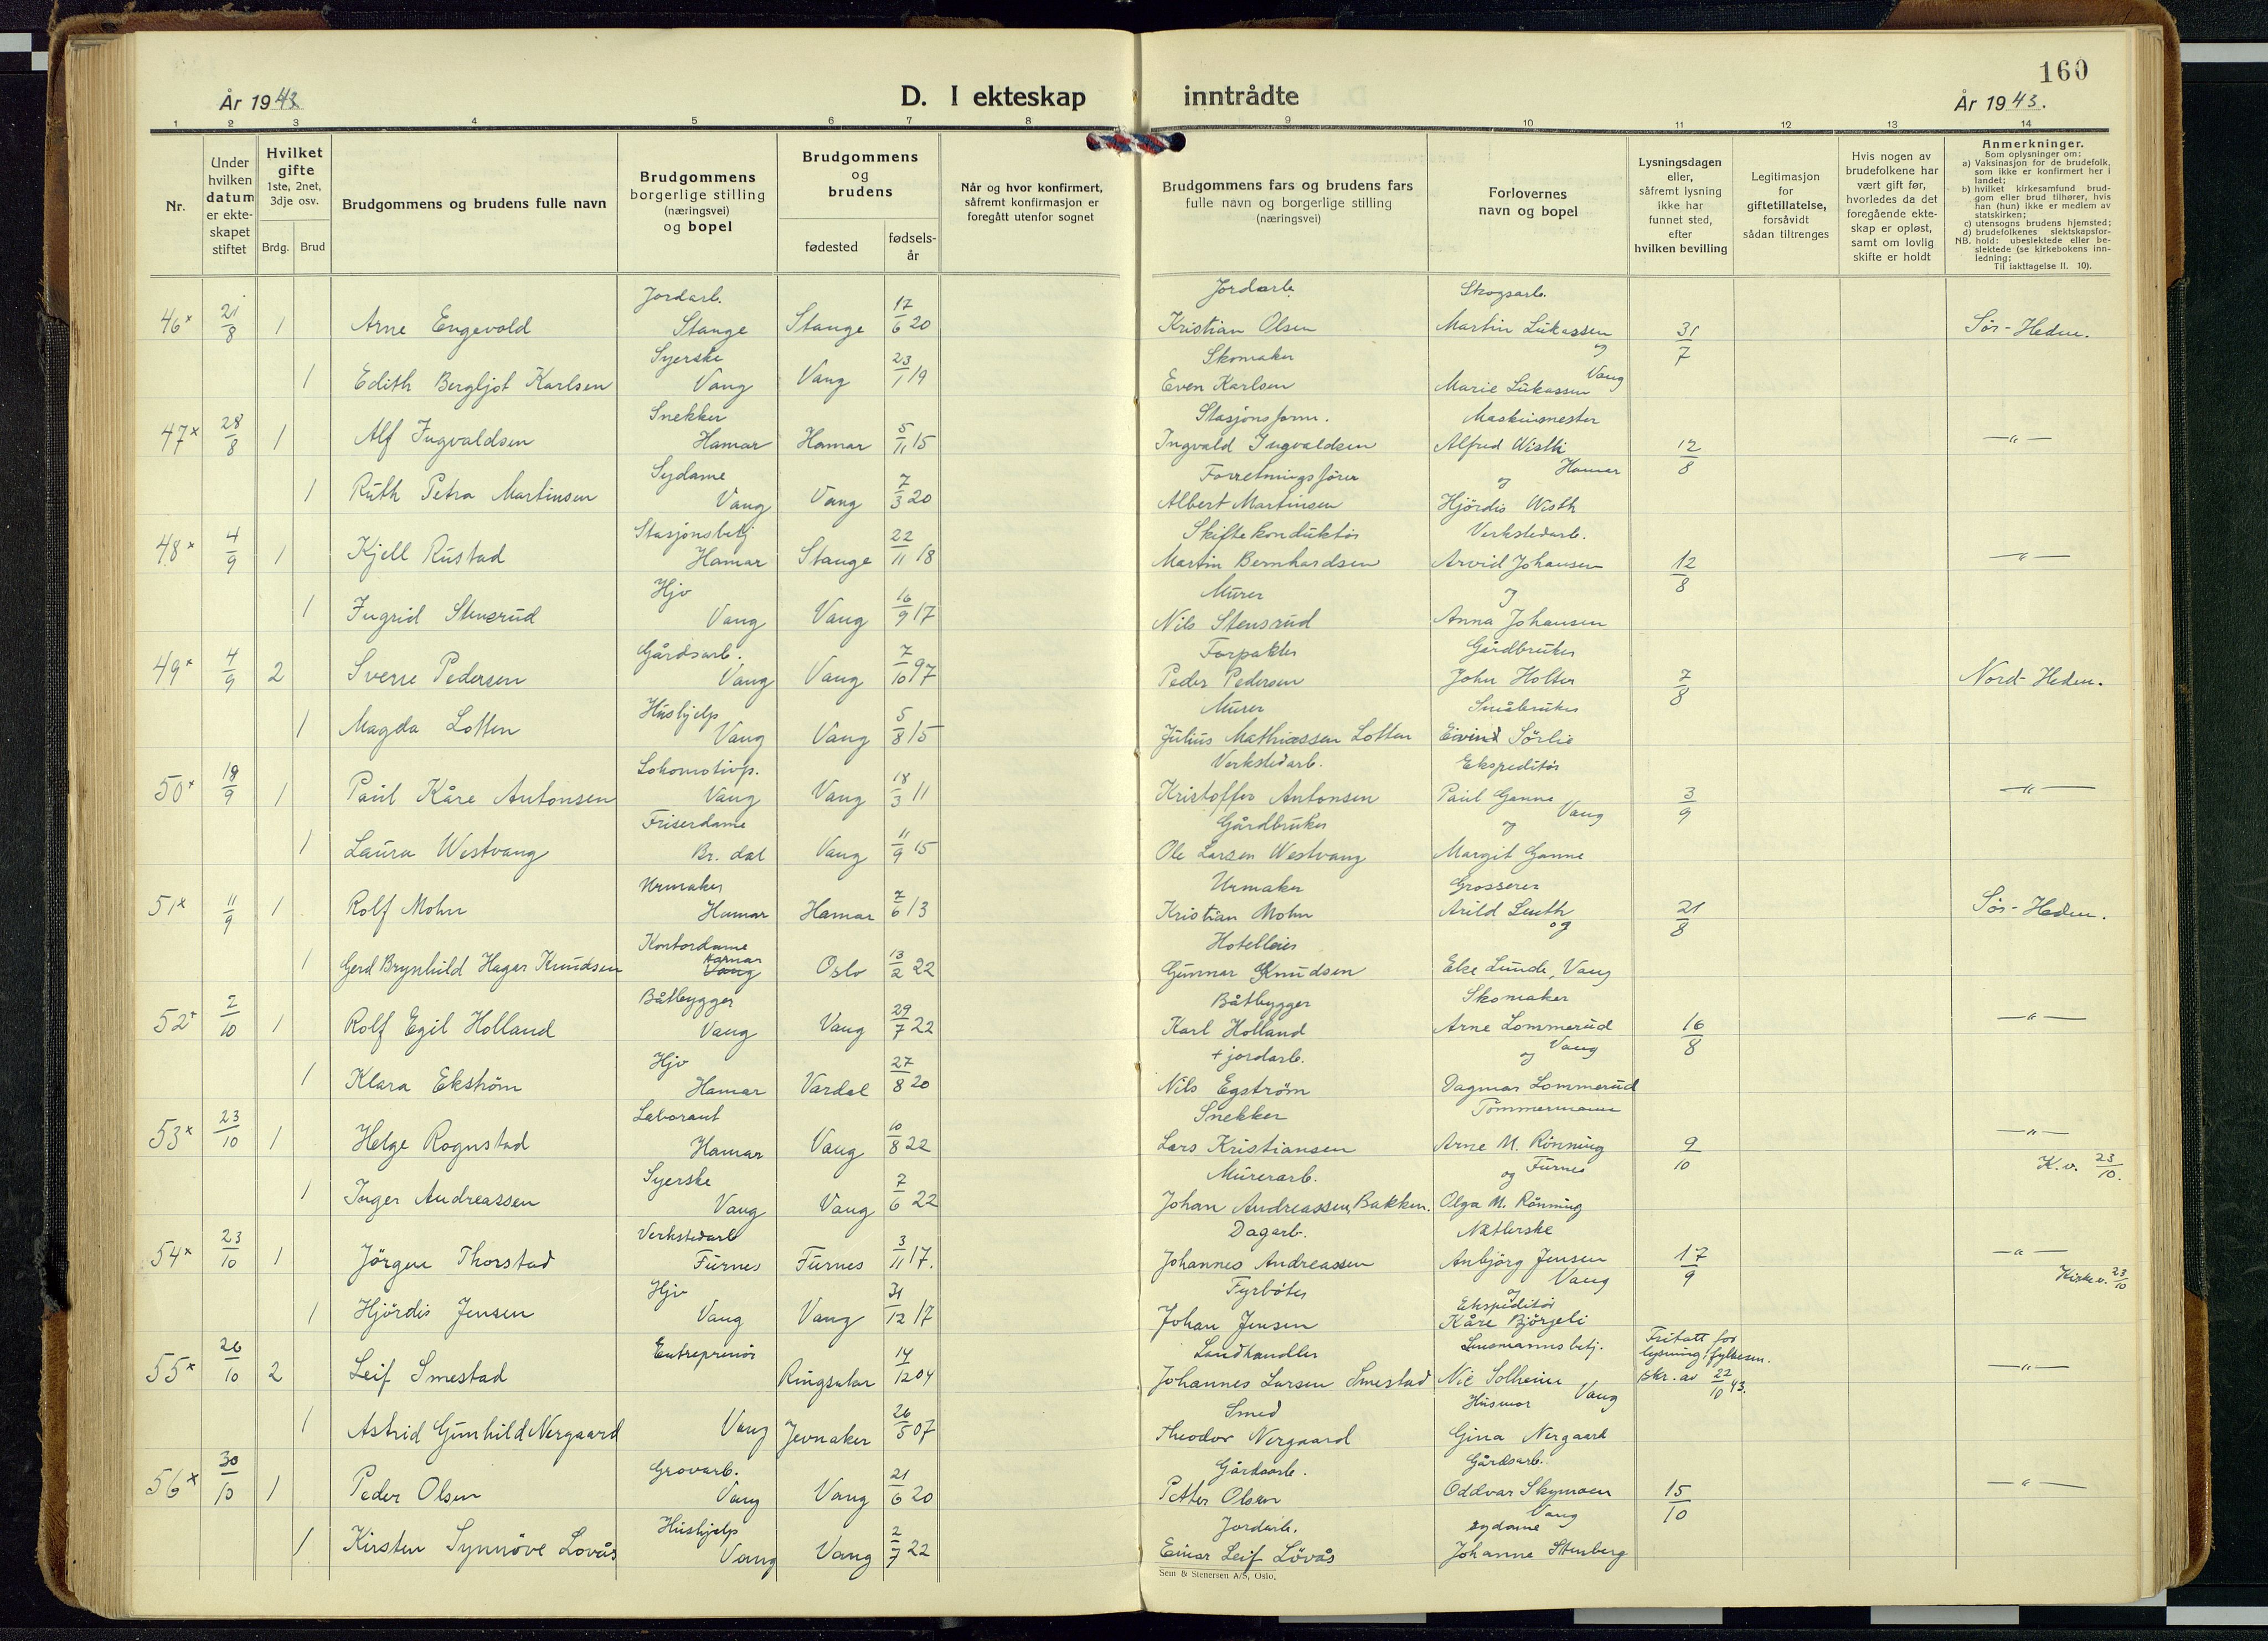 160
År 1943
D. I ekteskap inntrådte
År 1943.
1 2 3 4 5 6 7 8 9 10 11 12 13 14
Nr.
Under hvilken datum er ekte-skapet stiftet
Hvilket gifte 1ste, 2net, 3dje osv.
Brdg. Brud
Brudgommens og brudens fulle navn
Brudgommens borgerlige stilling (næringsvei) og bopel
Brudgommens og brudens
fødested
fødsels-år
Når og hvor konfirmert, såfremt konfirmasjon er foregått utenfor sognet
Brudgommens fars og brudens fars fulle navn og borgerlige stilling (næringsvei)
Forlovernes navn og bopel
Lysningsdagen eller, såfremt lysning ikke har funnet sted, efter hvilken bevilling
Legitimasjon for giftetillatelse, forsåvidt sådan tiltrenges
Hvis nogen av brudefolkene har vært gift før, hvorledes da det foregående ekte-skap er opløst, samt om lovlig skifte er holdt
Anmerkninger.
Som oplysninger om:
a) Vaksinasjon for de brudefolk, som ikke er konfirmert her i landet;
b) hvilket kirkesamfund brud-gom eller brud tilhører, hvis han (hun) ikke er medlem av statskirken;
c) utensogns brudens hjemsted;
d) brudefolkenes slektskapsfor-hold: ubeslektede eller be-slektede (se kirkebokens inn-ledning;
NB. Til iakttagelse II. 10).
Jordarb. Jordarb. Skogsarb.
46x 21/8 1 Arne Engevold Stange Stange 17/6 20 Kristian Olsen Martin Lukassen 31/7 Sör-Hedm.
Syerske Skomaker og
1 Edith Bergljot Karlsen Vang Vang 23/1 19 Even Karlsen Marie Lukassen Vang
Snekker Stasjonsform. Maskinmester
47x 28/8 1 Alf Ingvaldsen Hamar Hamar 5/11 15 Ingvald Ingvaldsen Alfred Wisth 12/8 —"—
Sydame Forretningsförer og Hamar
1 Ruth Petra Martinsen Vang Vang 7/3 20 Albert Martinsen Hjördis Wisth
Stasjonsbetj Skiftekonduktör Verkstedarb.
48x 4/9 1 Kjell Rustad Hamar Stange 22/11 18 Martin Bernhardsen Arvid Johansen 12/8 —"—
Hjv Murer og
1 Ingrid Stensrud Vang Vang 16/9 17 Nils Stensrud Anna Johansen
Gårdsarb. Forpakter Gårdbruker
49x 4/9 2 Sverre Pedersen Vang Vang 7/10 97 Peder Pedersen John Holter 7/8 Nord-Hedm.
Hushjelp Murer Småbruker
1 Magda Lotten Vang Vang 5/8 15 Julius Mathiassen Lotten Eivind Sörlie
Lokomotivp. Verkstedarb. Ekspeditör
50x 18/9 1 Paul Kåre Antonsen Vang Vang 18/3 11 Kristoffer Antonsen Paul Ganne 3/9 —"—
Friserdame Gårdbruker og Vang
1 Laura Westvang Br. dal Vang 11/9 15 Ole Larsen Westvang Margit Ganne
Urmaker Urmaker Grosserer
51x 11/9 1 Rolf Mohn Hamar Hamar 7/6 13 Kristian Mohn Arild Leuth 21/8 Sör-Hedm.
Kontordame Hotelleier og
1 Gerd Brynhild Hager Knudsen Hamar Vang Oslo 13/2 22 Gunnar Knudsen Else Lunde, Vang
Båtbygger Båtbygger Skomaker
52x 2/10 1 Rolf Egil Holland Vang Vang 29/7 22 Karl Holland Arne Lommerud 16/8 —"—
Hjv + jordarb. og Vang
1 Klara Ekström Hamar Vardal 27/8 20 Nils Egström Dagmar Lommerud
Laborant Snekker Tömmermann
53x 23/10 1 Helge Rognstad Hamar Vang 10/8 22 Lars Kristiansen Arne M. Rönning 9/10 —"—
Syerske Murerarb. og Furnes K.v. 23/10.
1 Inger Andreassen Vang Vang 7/6 22 Johan Andreassen, Bakken. Olga M. Rönning
Verkstedarb Dagarb. Natlerske
54x 23/10 1 Jörgen Thorstad Furnes Furnes 3/11 17. Johannes Andreassen Anbjörg Jensen 17/9 —"—
Hjv Fyrböter og Vang Kirkev. 23/10
1 Hjördis Jensen Vang Vang 31/12 17 Johan Jensen Ekspeditör Kåre Björgeli
Entreprenör Landhandler Lensmannsbetj. Fritatt for lysning, fylkesm.
55x 26/10 2 Leif Smestad Ringsaker 14/12 04 Johannes Larsen Smestad Nic Solheim skr. av 22/10 43. —"—
Smed Husmor Vang
1 Astrid Gunhild Nergaard Vang Jevnaker 26/5 07 Theodor Nergaard Gina Nergaard
Grovarb. Gårdsarb. Gårdsarb.
56x 30/10 1 Peder Olsen Vang Vang 21/6 20 Petter Olsen Oddvar Skymoen 15/10 —"—
Hushjelp Jordarb. Sydame Vang
1 Kirsten Synnöve Lovås Vang Vang 2/7 22 Einar Leif Lövås Johanne Stenberg
Sem & Stenersen A/S, Oslo.